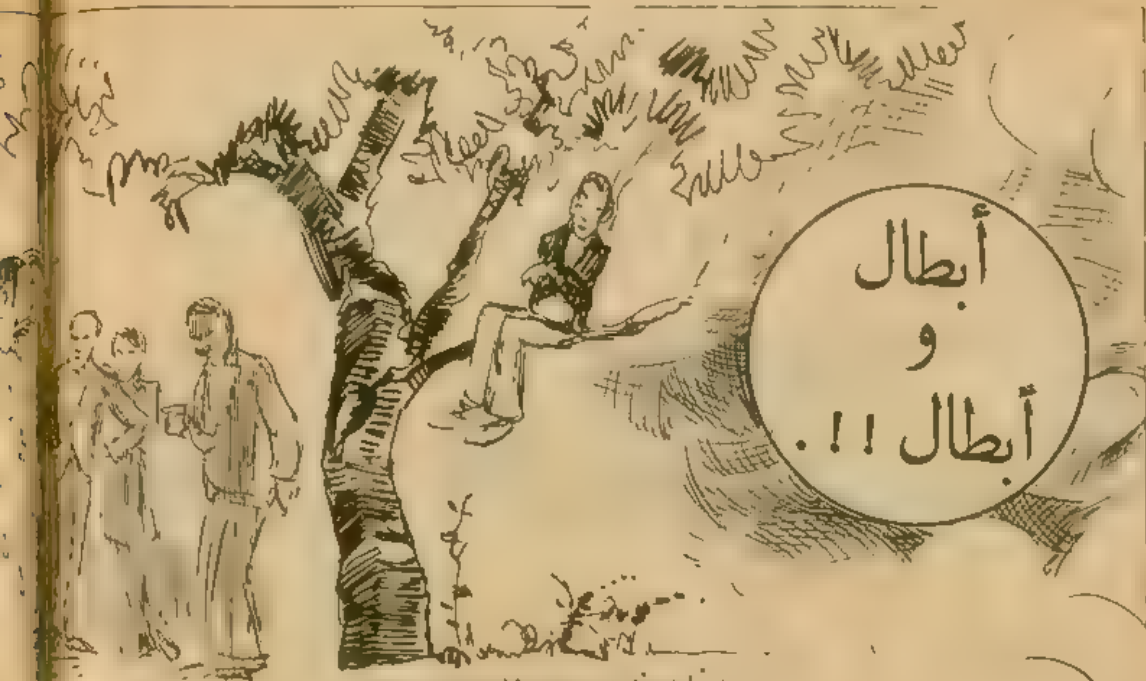 أبطال
و
أبطال !!.